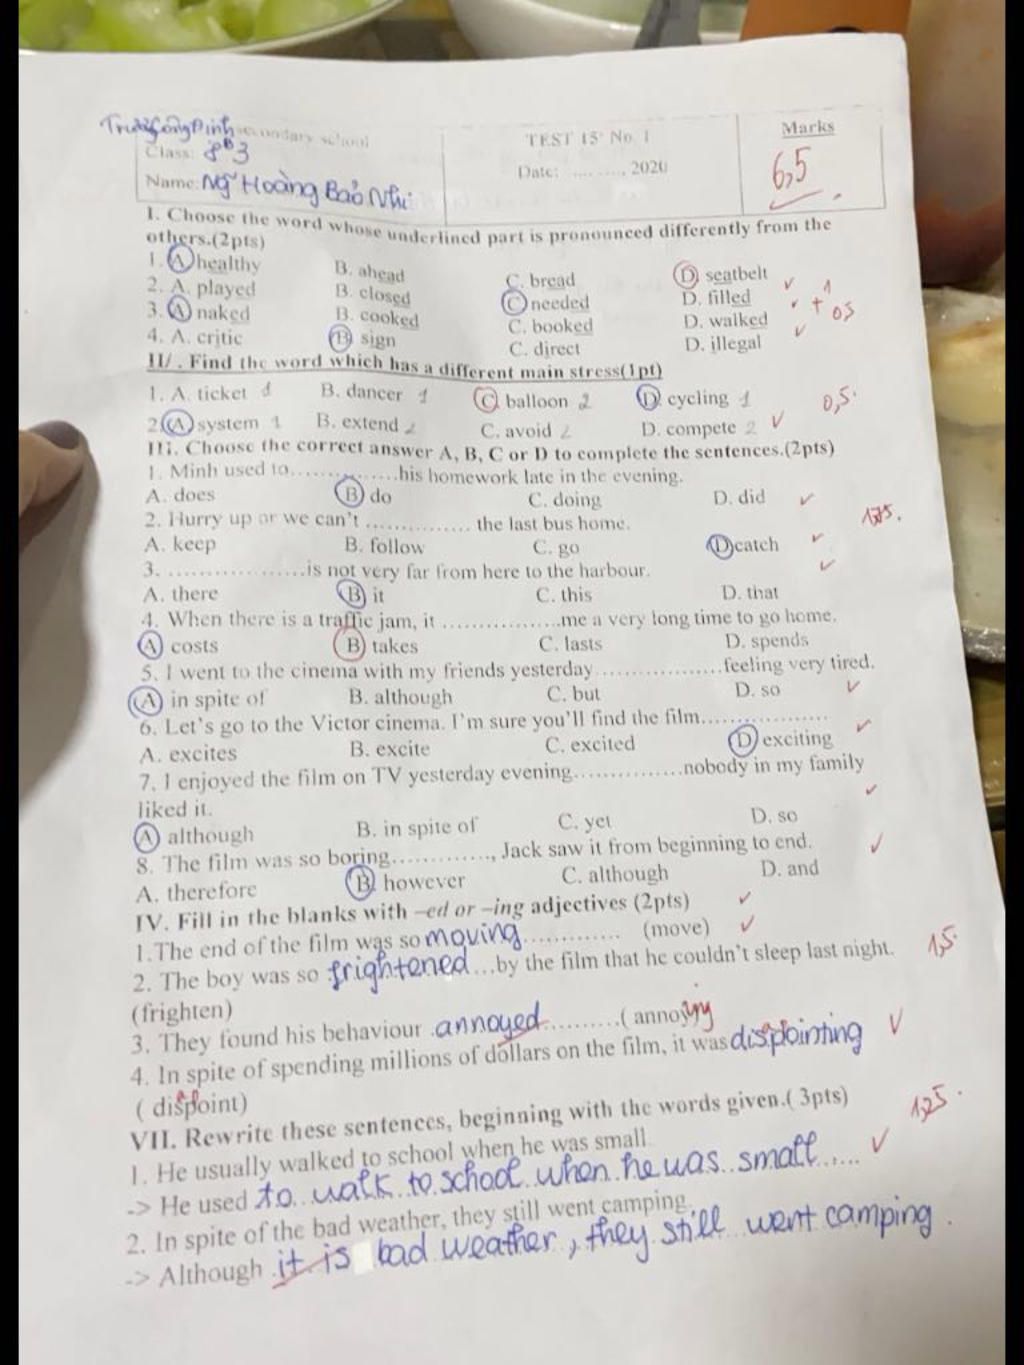 Trương Công Định secondary school
Class: 8B3
Name: Ng~ Hoàng Bảo Nhi
TEST 15' No. 1
Date: .... ......, 2020
Marks
6,5
I. Choose the word whose underlined part is pronounced differently from the
others.(2pts)
1. A healthy B. ahead C. bread D. seatbelt
2. A. played B. closed C needed D. filled
3. A naked B. cooked C. booked D. walked
4. A. critic B sign C. direct D. illegal
1 + 05
II/ . Find the word which has a different main stress(1pt)
1. A. ticket 1 B. dancer 1 C. balloon 2 D. cycling 1
2. A system 1 B. extend 2 C. avoid 2 D. compete 2
0,5.
III. Choose the correct answer A, B, C or D to complete the sentences.(2pts)
1. Minh used to..................his homework late in the evening.
A. does B do C. doing D. did
2. Hurry up or we can't ................ the last bus home.
A. keep B. follow C. go D catch
1,75.
3. .....................is not very far from here to the harbour.
A. there B it C. this D. that
4. When there is a traffic jam, it ..................me a very long time to go home.
A costs B takes C. lasts D. spends
5. I went to the cinema with my friends yesterday...................feeling very tired.
A in spite of B. although C. but D. so
6. Let's go to the Victor cinema. I'm sure you'll find the film...................
A. excites B. excite C. excited D exciting
7. I enjoyed the film on TV yesterday evening................nobody in my family
liked it.
A although B. in spite of C. yet D. so
8. The film was so boring.............., Jack saw it from beginning to end.
A. therefore B. however C. although D. and
IV. Fill in the blanks with –ed or –ing adjectives (2pts)
1.The end of the film was so moving.............. (move)
2. The boy was so frightened...by the film that he couldn't sleep last night.
(frighten)
1,5.
3. They found his behaviour .annoyed..........( annoy) ing
4. In spite of spending millions of dollars on the film, it was dispointing
( dispoint)
VII. Rewrite these sentences, beginning with the words given.( 3pts)
1,25.
1. He usually walked to school when he was small.
-> He used to walk to school when he was small.....
2. In spite of the bad weather, they still went camping.
-> Although it is bad weather, they still went camping.